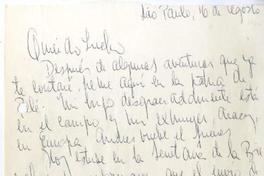 São Paulo, 16 de agosto
Querido Lucho
Después de algunas aventuras que ya
te contaré, heme aquí en la patria de
Pelé. Mi hijo desgraciadamente está
en el campo, mi exmujer Aracy,
en Europa. Andrés vuelve el jueves
Hoy estuve en la